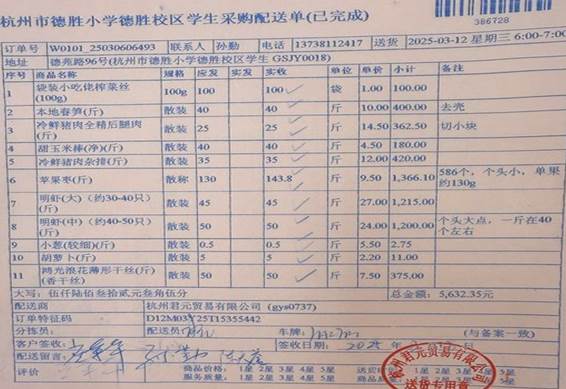 杭州市德胜小学德胜校区学生采购配送单(已完成)
386728
订单号 W0101_25030606493 联系人 孙勤 电话 13738112417 送货 2025-03-12 星期三 6:00-7:00
地址 德苑路96号(杭州市德胜小学德胜校区学生 GSJY0018)
序号 名称 规格 应发 实发 实收 单位 单价 小计 备注
1 袋装小吃佬榨菜丝(100g) 100g 100 100 袋 1.00 100.00
2 本地春笋(斤) 散装 40 40 斤 10.00 400.00 去壳
3 冷鲜猪肉全精后腿肉(斤) 散装 25 25 斤 14.50 362.50 切小块
4 甜玉米棒(净)(斤) 散装 40 40 斤 4.50 180.00
5 冷鲜猪肉杂排(斤) 散装 35 35 斤 12.00 420.00
6 苹果枣(斤) 散称 130 143.8 斤 9.50 1,366.10 586个，个头小，单果约130g
7 明虾(大)(约30-40只)(斤) 散装 45 45 斤 27.00 1,215.00
8 明虾(中)(约40-50只)(斤) 散装 50 50 斤 24.00 1,200.00 个头大点，一斤在40个左右
9 小葱(较细)(斤) 散装 0.5 0.5 斤 5.50 2.75
10 胡萝卜(斤) 散装 5 5 斤 2.20 11.00
11 网光浪花薄形干丝(斤)(香干丝) 散装 50 50 斤 7.50 375.00
大写：伍仟陆佰叁拾贰元叁角伍分 总金额：5,632.35元
配送商 杭州君元贸易有限公司 (gys0737)
订单特征码 D12M03Y25T15355442
分拣员： 配送员 车牌： (与备案一致)
客户签收： 签收日期： 2025
配送留言： 商品价格：1星 2星 3星 4星 5星
服务质量：1星 2星 3星 4星 5星
杭州君元贸易有限公司
送货专用章